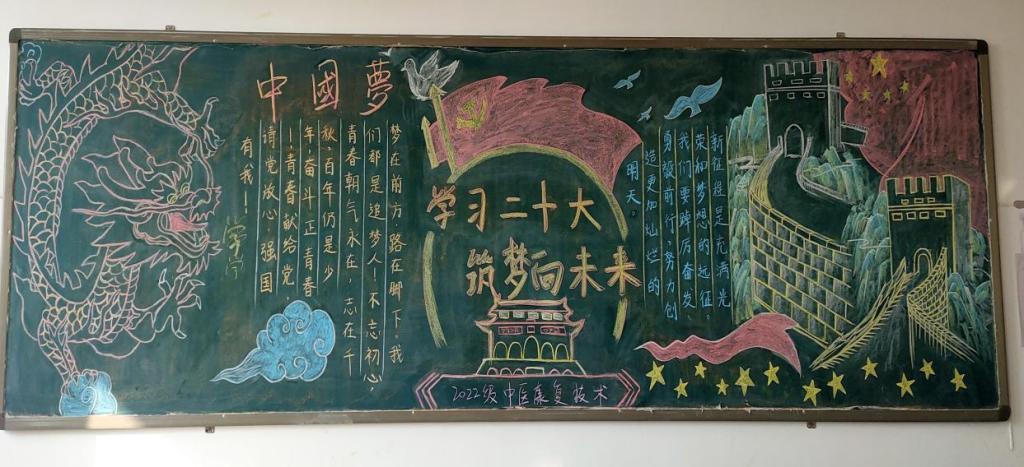 中國夢
梦在前方路在脚下。我
们都是追梦人！不忘初心，
青春朝气永在，志在千
秋，百年仍是少
年，奋斗正青春
！青春献给党
请党放心，强国
有我！
学习二十大
筑梦向未来
2022级中医康复技术
新征程是充满光
荣和梦想的远征，
我们要踔厉奋发、
勇毅前行、努力创
造更加灿烂的
明天。